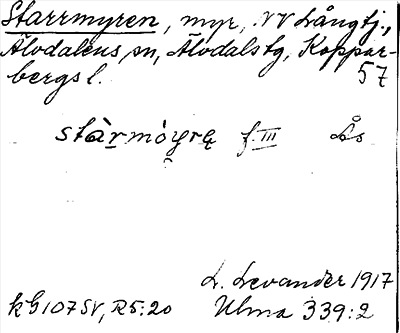 Starrmyren, myr, NV Långtj.,
Älvdalens sn, Älvdals tg, Koppar-
bergs l. 57
stàrmòyrę f. III Ås
L. Levander 1917
kG107SV, R5:20 Ulma 339:2